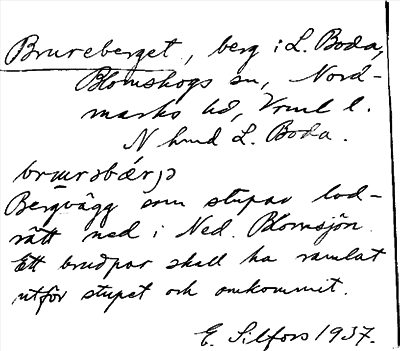 Brureberget, berg i L. Boda,
Blomskogs sn, Nord-
marks hd, Vrml l.
N hmd L. Boda.
Bergvägg som stupar lod-
rätt ned i Ned. Blomsjön.
Ett brudpar skall ha ramlat
utför stupet och omkommit.
E. Silfors 1937.